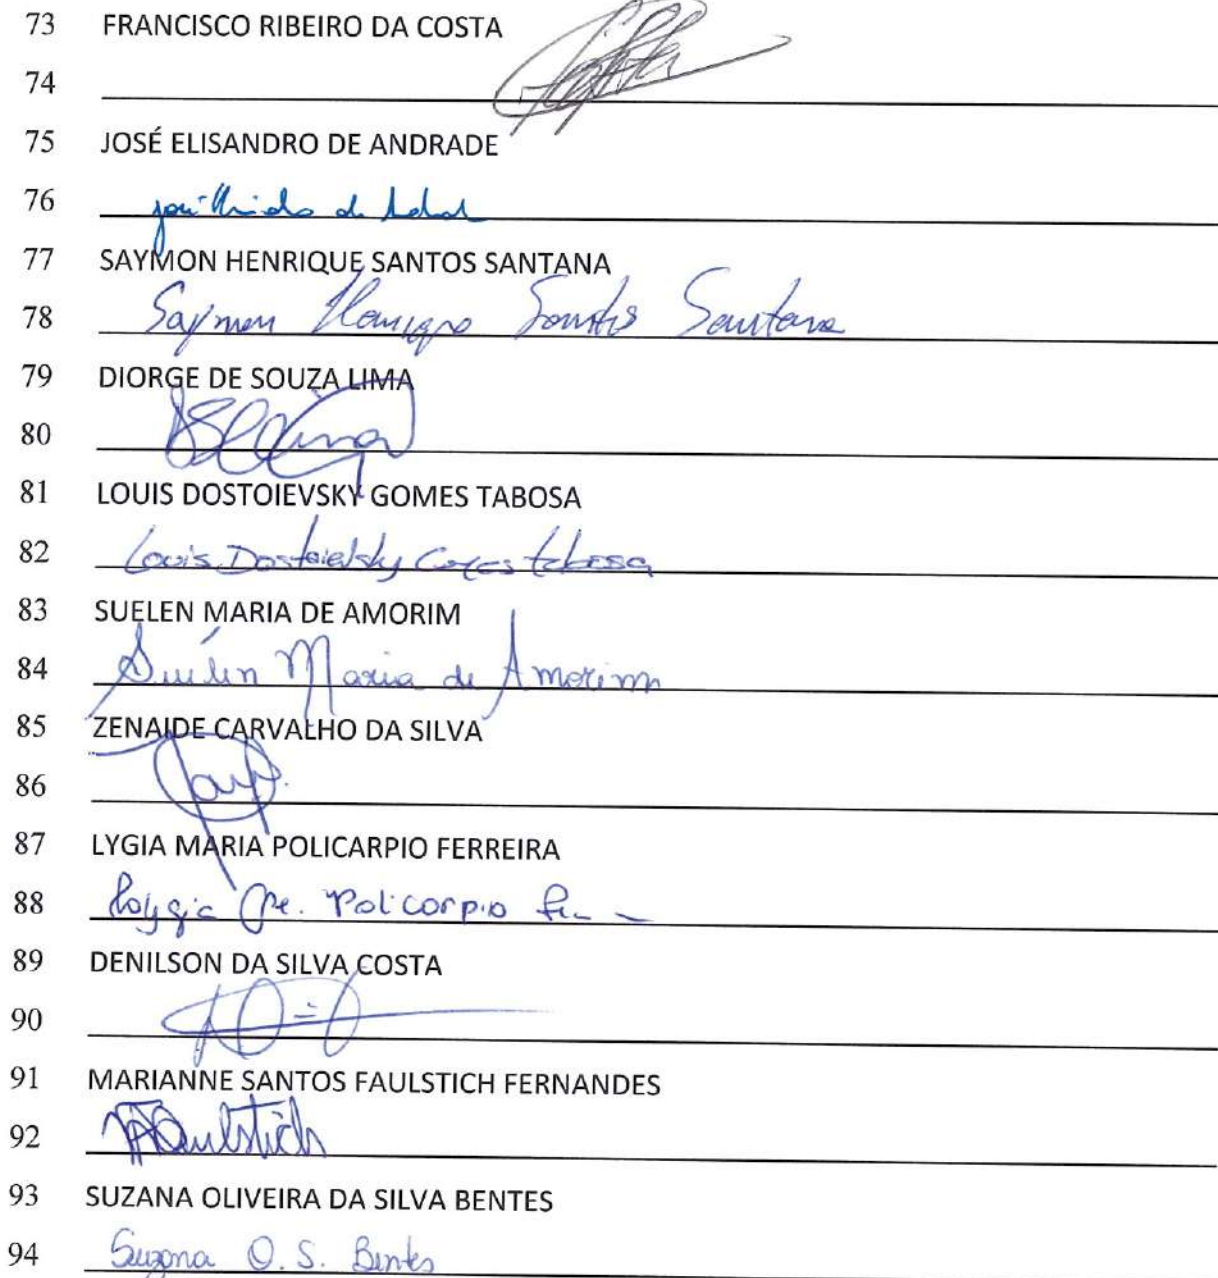 73 FRANCISCO RIBEIRO DA COSTA
74
75 JOSÉ ELISANDRO DE ANDRADE
76
77 SAYMON HENRIQUE SANTOS SANTANA
78 Saymon Henrique Santos Santana
79 DIORGE DE SOUZA LIMA
80
81 LOUIS DOSTOIEVSKY GOMES TABOSA
82 Louis Dostoievsky Gomes Tabosa
83 SUELEN MARIA DE AMORIM
84 Suélen Maria de Amorim
85 ZENAIDE CARVALHO DA SILVA
86
87 LYGIA MARIA POLICARPIO FERREIRA
88 Lygia Mª. Policarpio
89 DENILSON DA SILVA COSTA
90
91 MARIANNE SANTOS FAULSTICH FERNANDES
92 Faulstich
93 SUZANA OLIVEIRA DA SILVA BENTES
94 Suzana O. S. Bentes